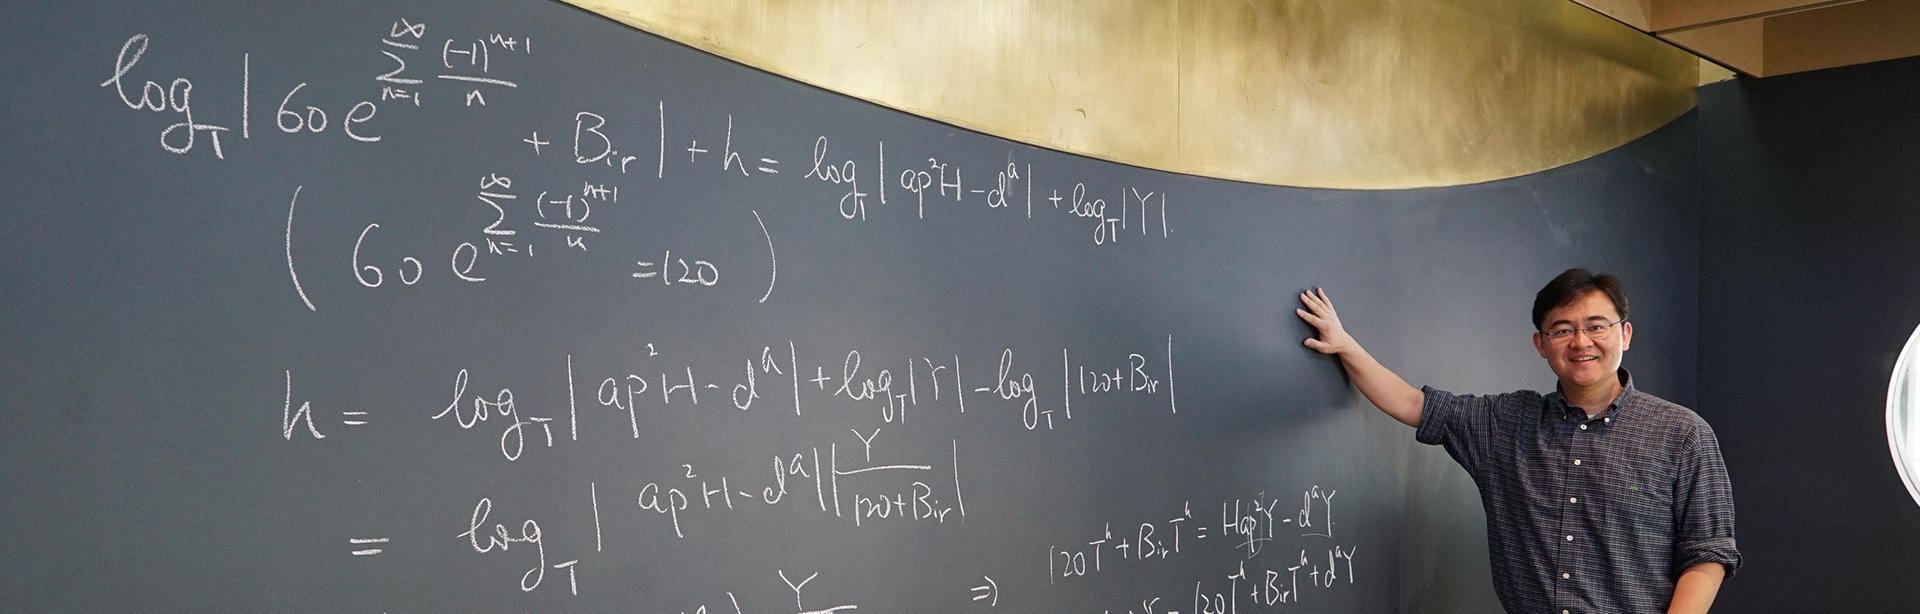 log_T | 60 e^{∑_{n=1}^{∞} (-1)^{n+1}/n} + B_{ir} | + h = log_T | ap²H - d^a | + log_T |Y|.
( 60 e^{∑_{n=1}^{∞} (-1)^{n+1}/n} = 120 )
h = log_T | ap²H - d^a | + log_T |Y| - log_T | 120 + B_{ir} |
= log_T | ap²H - d^a | | Y/(120 + B_{ir}) |
⇒ 120T^h + B_{ir}T^h = Hap²Y - d^aY
120T^h + B_{ir}T^h + d^aY